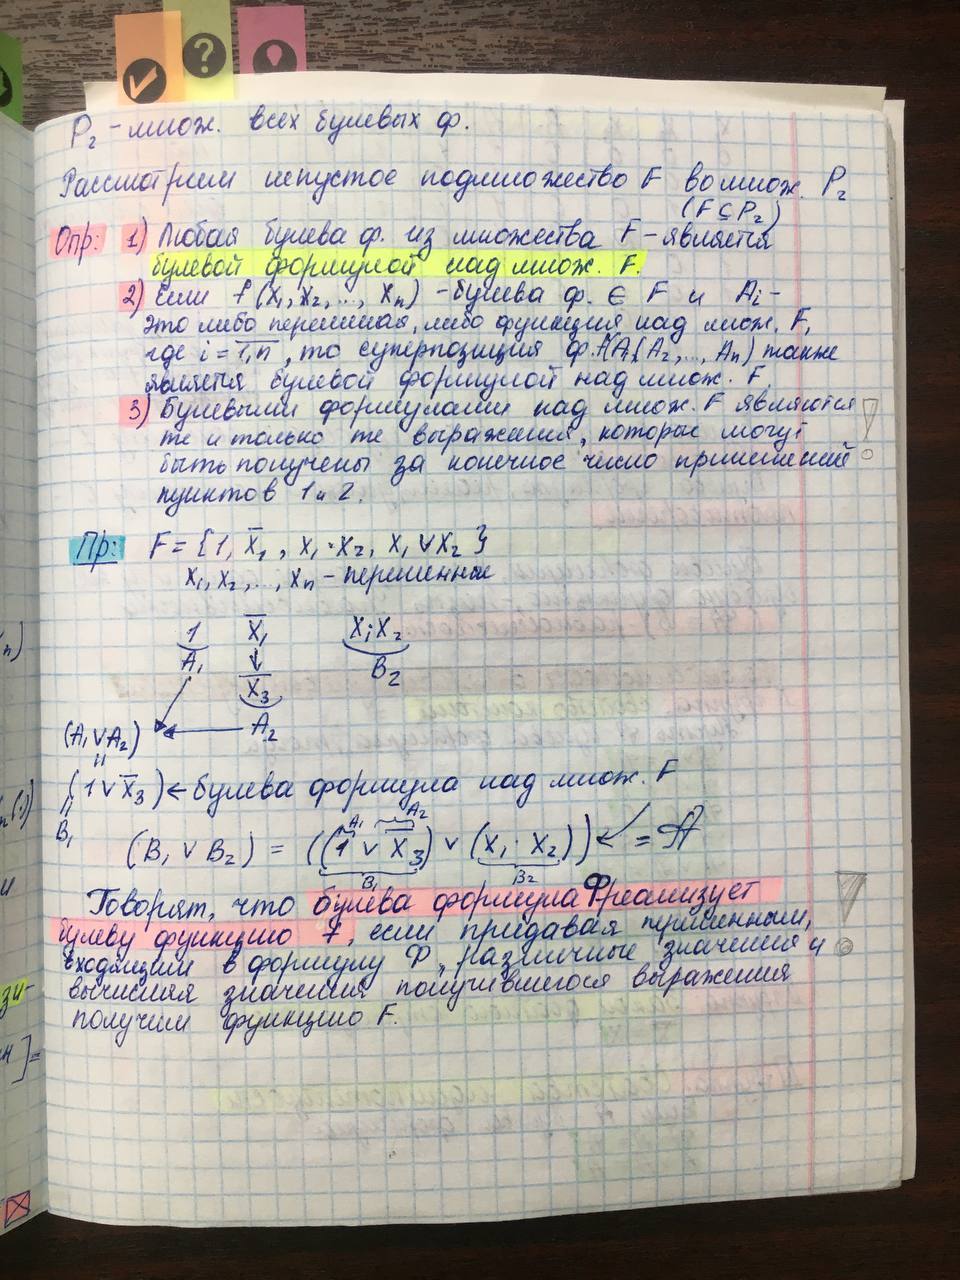 P₂ – множ. всех булевых ф.
Рассмотрим непустое подмножество F во множ. P₂
(F ⊆ P₂)
Опр: 1) Любая булева ф. из множества F – является
булевой формулой над множ. F.
2) Если f (x₁, x₂, ..., xₙ) – булева ф. ∈ F и Aᵢ –
это либо переменная, либо функция над множ. F,
где i = 1,n, то суперпозиция ф. f(A₁, A₂, ..., Aₙ) также
является булевой формулой над множ. F.
3) Булевыми формулами над множ. F являются
те и только те выражения, которые могут
быть получены за конечное число применений
пунктов 1 и 2.
Пр: F = {1, x̅₁, x₁·x₂, x₁ ∨ x₂}
x₁, x₂, ..., xₙ – переменные
1 x̅₁ x₁x₂
A₁ ↓ B₂
x̅₃
(A₁ ∨ A₂) ← A₂
॥
(1 ∨ x̅₃) ← булева формула над множ. F
॥
A₁ A₂
B₁ (B₁ ∨ B₂) = ((1 ∨ x̅₃) ∨ (x₁ · x₂)) ← = A
B₁ B₂
Говорят, что булева формула Ф реализует
булеву функцию f, если придавая переменным,
входящим в формулу Ф, различные значения и
вычисляя значения получившегося выражения
получим функцию F.